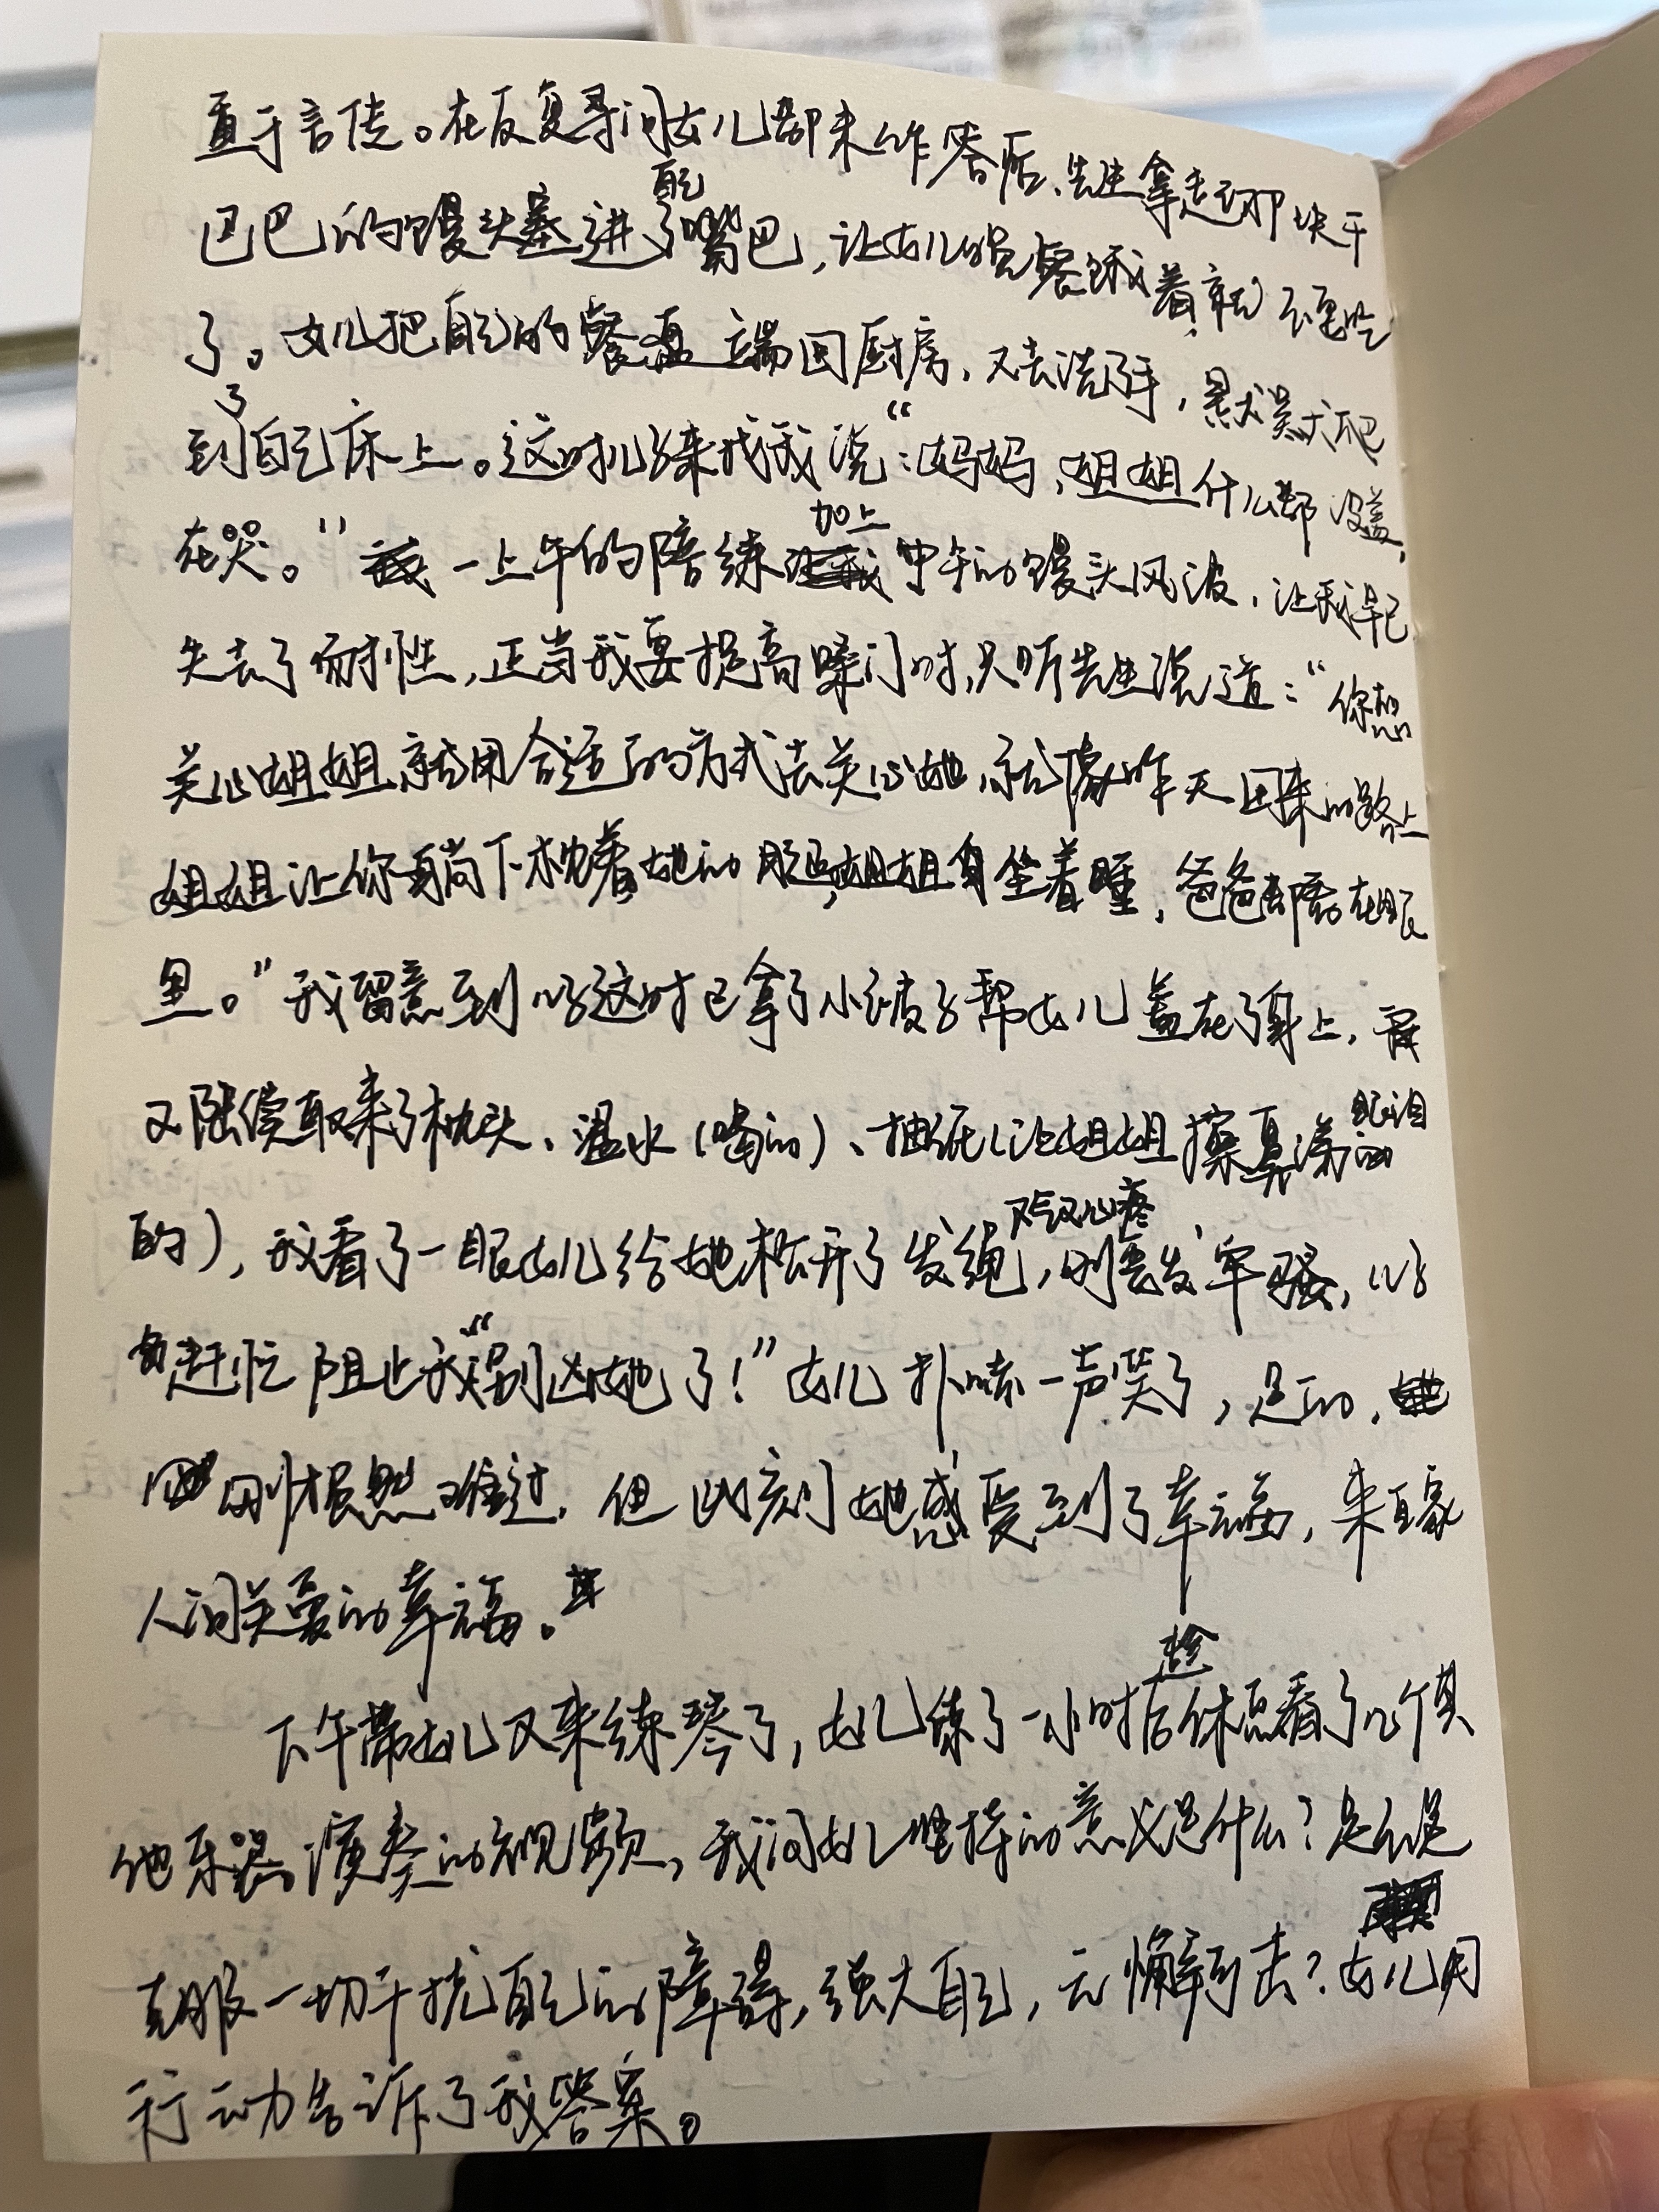 重于言传。在反复寻问女儿都未作答后、先生拿起那块干
巴巴的馒头塞进了自己嘴巴，让女儿的晚餐饿着就不要吃
了。女儿把自己的餐盘端回厨房，又去洗了手，默默爬
到了自己床上。这时儿子来找我说：“妈妈，姐姐什么都没盖，
在哭。”一上午的陪练加上中午的馒头风波，让我早已
失去了耐性，正当我要提高嗓门时，只听先生说道：“你想
关心姐姐，就用合适的方式去关心她，就像昨天回来的路上
姐姐让你躺下枕着她的腿，姐姐自坐着睡，爸爸都看在眼
里。”我留意到儿子这时已拿了小被子帮女儿盖在了身上，
又陆续取来了枕头、温水（喝的）、抽纸（让姐姐擦鼻涕眼泪
的），我看了一眼女儿给她松开了发绳，又气又心疼，刚要发牢骚，儿子
赶忙阻止我“别凶她了！”女儿扑哧一声笑了，是的，
刚刚虽然难过，但此刻她感受到了幸福，来自家
人间关爱的幸福。
下午带女儿又来练琴了，女儿练了一小时后趁休息看了几个其
他乐器演奏的视频，我问女儿坚持的意义是什么？是不是
克服一切干扰自己的障碍，强大自己，不懈到去？女儿用
行动告诉了我答案。